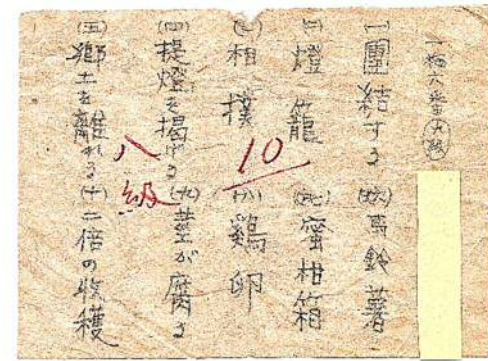 (一)團結する (六)馬鈴薯
(二)燈籠 (七)蜜柑箱
(三)相撲 (八)鷄卵
(四)提燈を揭げる (九)莖が腐る
(五)鄕土を離れる (十)二倍の收穫
10
八級